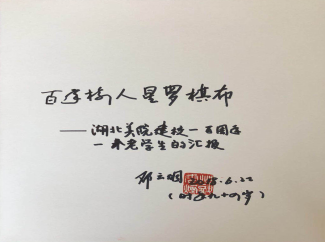 百年树人星罗棋布
——湖北美院建校一百周年
一个老学生的汇报
6.22
(时年九十四岁)